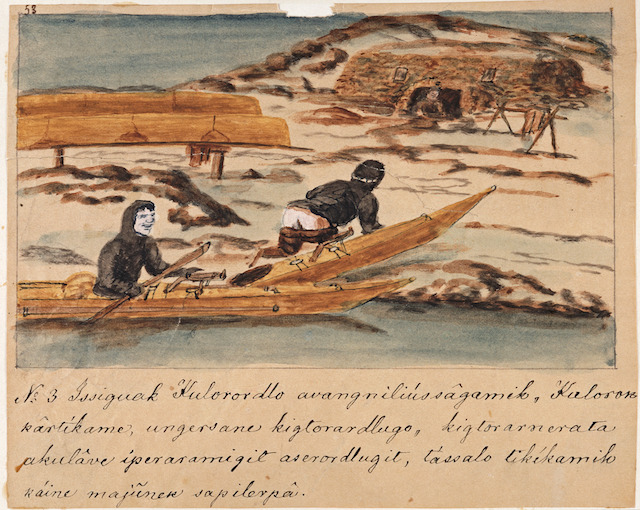 58
№ 3 Issiguak Kulorordlo avangniliússâgamik, Kulorok
kârtíkame, ungersane kigtorardlugo, kigtorarnerata
akulâve íperaramigit aserordlugit, tássalo tikékamik
káine majûnek sapilerpâ.